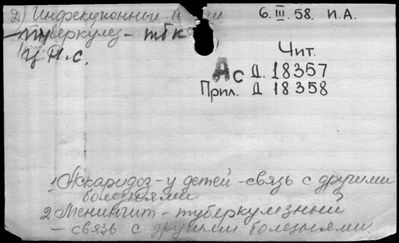 2) Инфекционный
6.III.58. И.А.
туберкулез - тбк
ц н.с.
Чит.
Ас Д. 18357
Прил. Д 18358
1) Аскаридоз - у детей - связь с другими
болезнями
2) Менингит - туберкулезный
- связь с другими болезнями